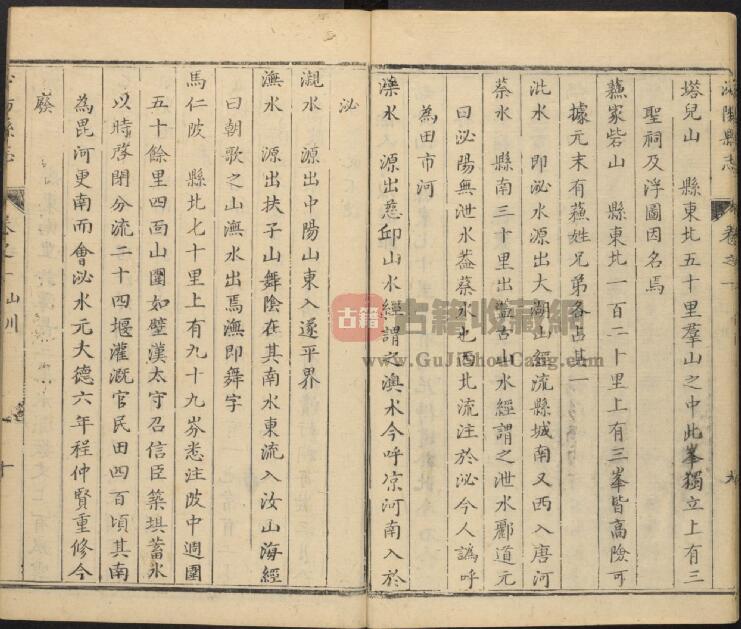 泌陽縣志
卷之一
九
塔兒山　縣東北五十里羣山之中此峯獨立上有三
聖祠及浮圖因名焉
蘓家砦山　縣東北一百二十里上有三峯皆高險可
據元末有蘓姓兄弟各占其一
泚水　即泌水源出大湖山經流縣城南又西入唐河
蔡水　縣南三十里出盤古山水經謂之泄水酈道元
曰泌陽無泄水葢蔡水也西北流注於泌今人譌呼
為田市河
澲水　源出慈邱山水經謂之澳水今呼凉河南入於
泌
瀙水　源出中陽山東入遂平界
潕水　源出扶子山舞陰在其南水東流入汝山海經
曰朝歌之山潕水出焉潕即舞字
馬仁陂　縣北七十里上有九十九岔悉注陂中週圍
五十餘里四面山圍如壁漢太守召信臣築埧蓄水
以時啓閉分流二十四堰灌溉官民田四百頃其南
為毘河更南而會泌水元大德六年程仲賢重修今
廢
泌陽縣志
卷之一 山川
十
古籍 古籍收藏網
www.GuJiShouCang.com